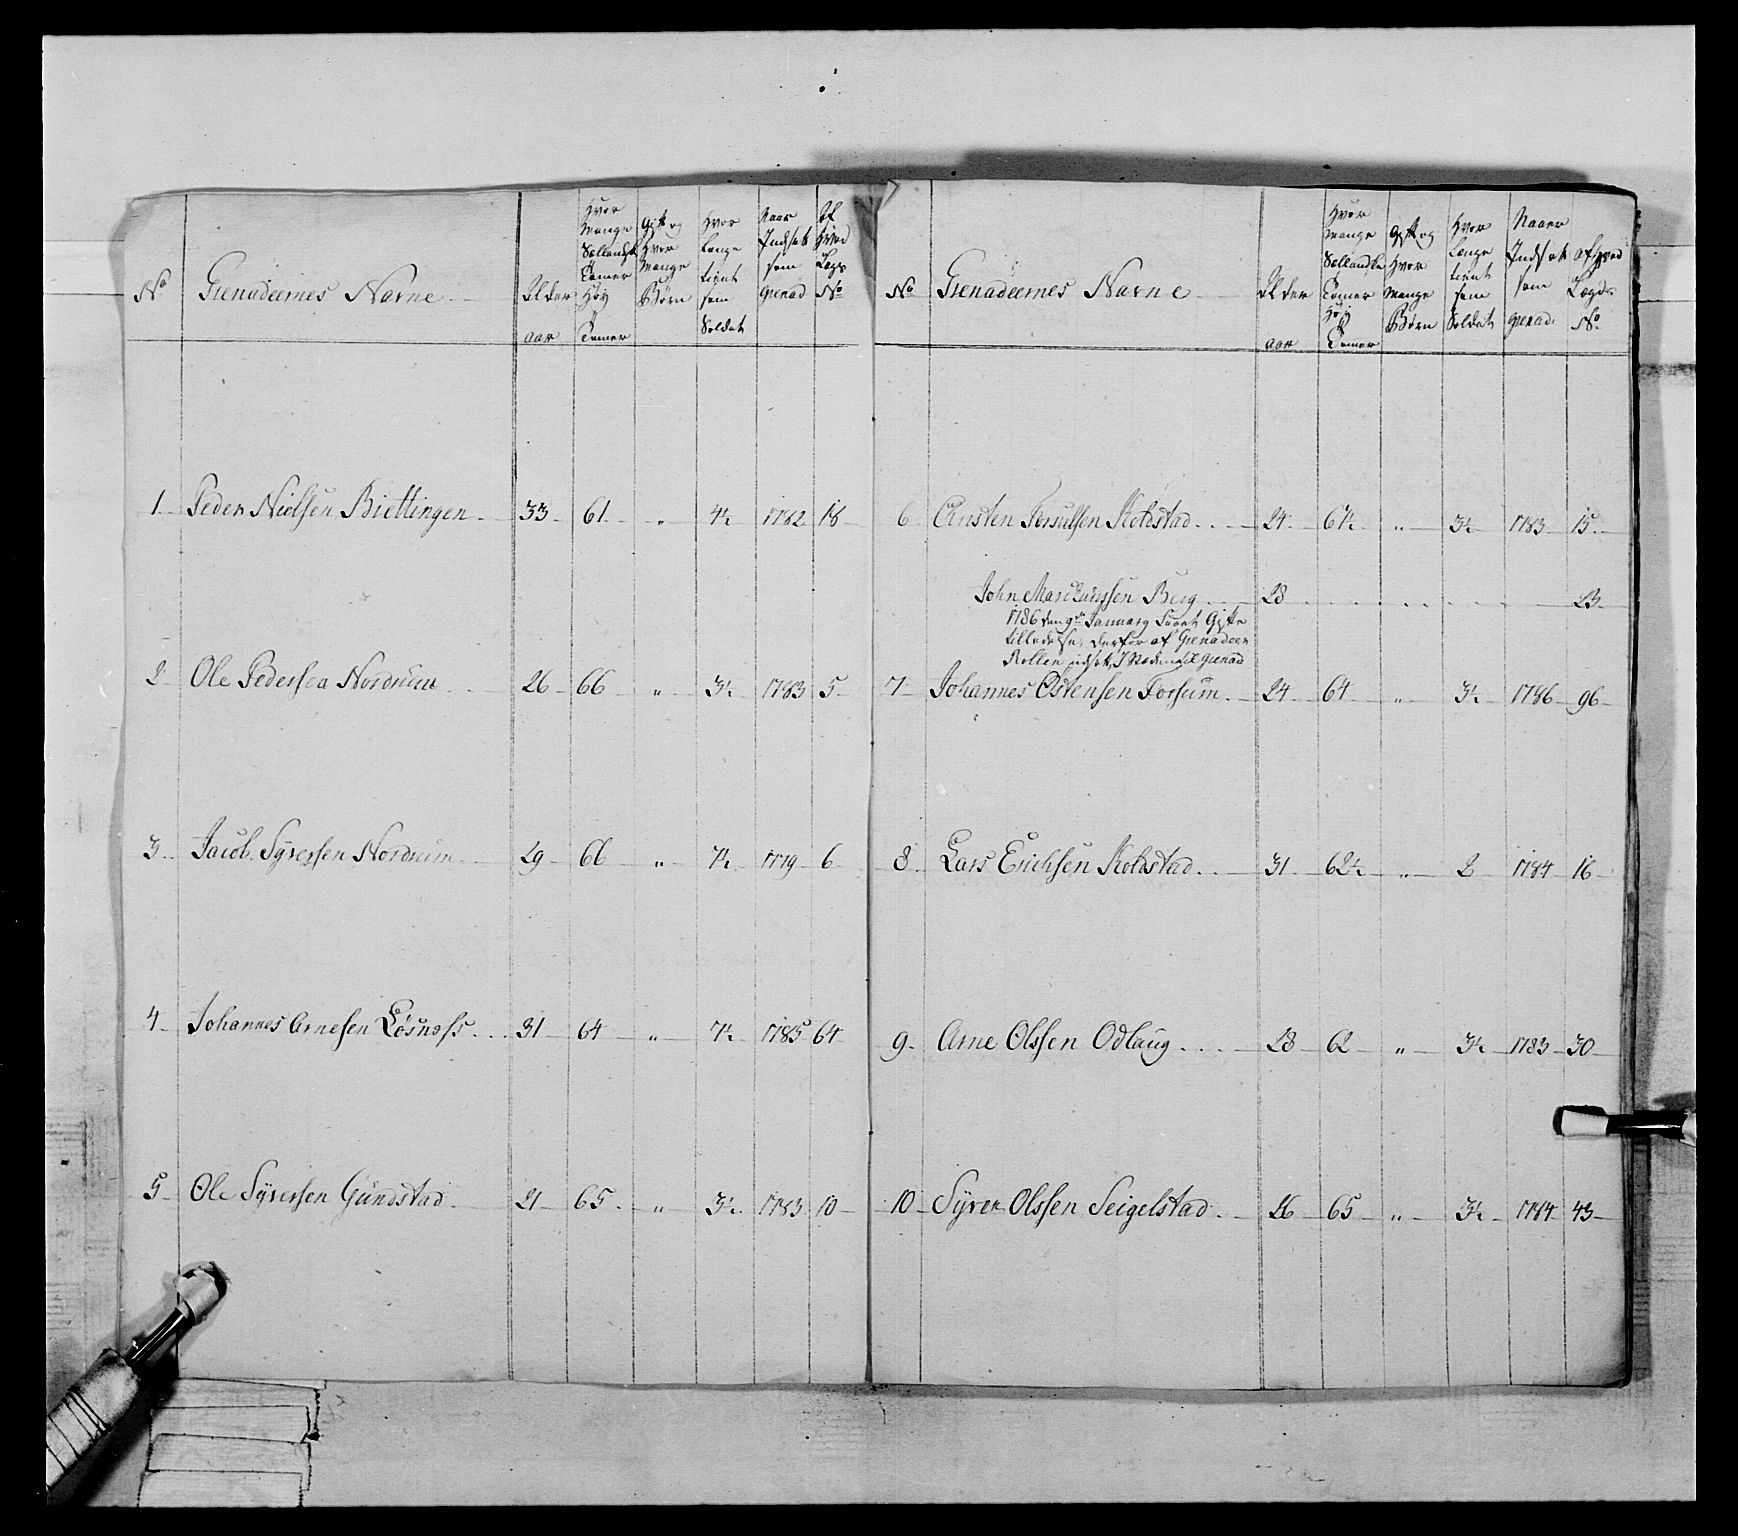 No
Grenadeernes Navne
Alder
aar
Hvor
Mange
Sællandske
Tomer
Høy
Tomer
Gift og
Hvor
Mange
Børn
Hvor
Længe
tient
som
Soldat
Naar
Indsat
som
grenad
Af
Hvad
Lægs
No
1 Peder Nielsen Biettingen 33 61 " 4½ 1782 18
2 Ole Pedersen Nordrum 26 66 " 3½ 1783 5
3 Jacob Syversen Nordrum 29 66 " 7½ 1779 6
4 Johannes Arnesen Løsness 31 64 " 7½ 1785 64
5 Ole Syversen Gundstad 21 65 " 3½ 1783 10
No
Grenadeernes Navne
Alder
aar
Hvor
Mange
Sællandske
Tomer
Høy
Tomer
Gift og
Hvor
Mange
Børn
Hvor
Længe
tient
som
Soldat
Naar
Indsat
som
grenad
af Hvad
Lægds
No
6 Torsulfsen Kolstad 24 61½ " 3½ 1783 15
John Berg 28 23
1786 den 9de Januarj Gifte
tilladelse, derfor af Grenadeer
Rollen udsat, I Stæden til Grenad
7 Johannes Østensen Forsum 24 64 " 3½ 1786 96
8 Lars Erichsen Kolstad 31 62½ " 2 1784 16
9 Arne Olssen Odlaug 28 62 " 3½ 1783 30
10 Syver Olssen Seigelstad 26 65 " 3½ 1784 43